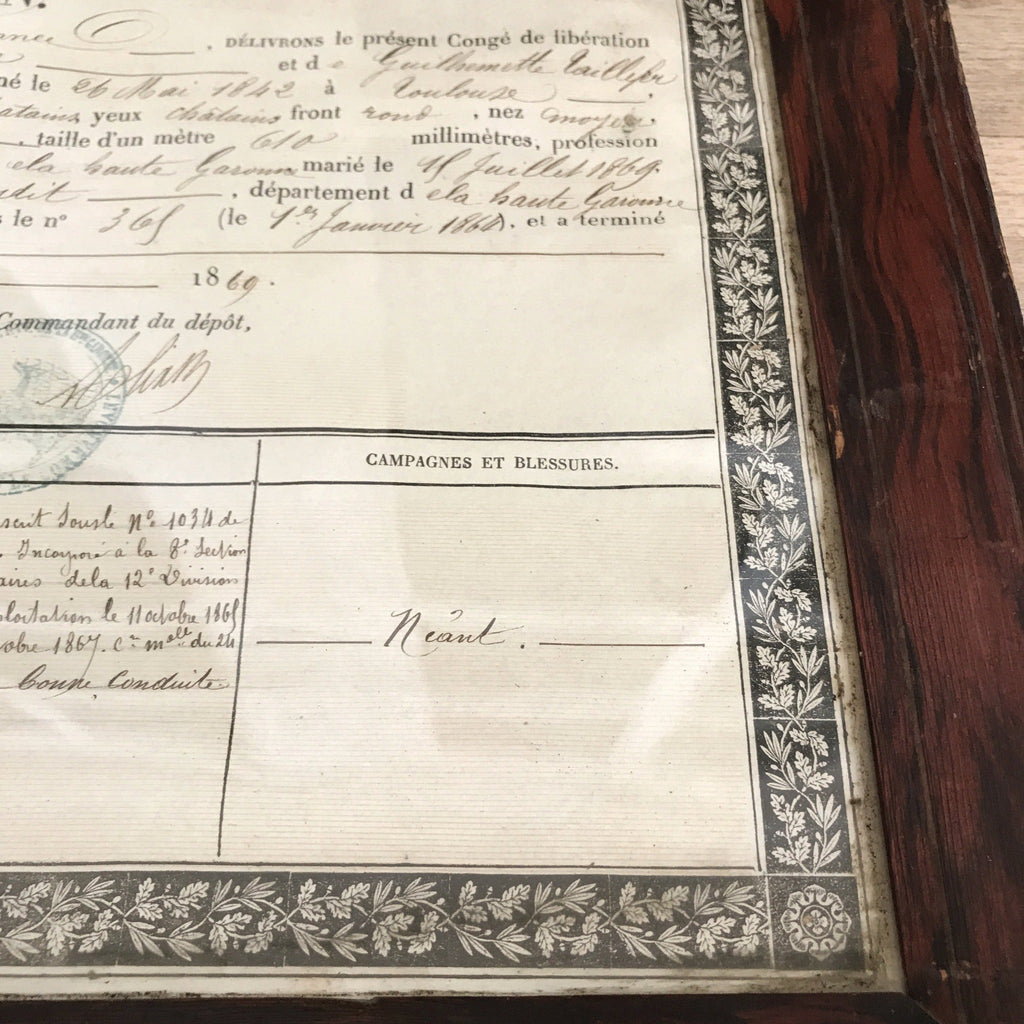 N.
DÉLIVRONS le présent Congé de libération
et de Guilhemette
né le 26 Mai 1842 à Toulouse
yeux châtains front rond, nez moyen
, taille d'un mètre 610 millimètres, profession
ela haute Garonne marié le 15 Juillet 1869.
dit, département dela haute Garonne
le n° 365 (le 1er Janvier 1864), et a terminé
1869.
Commandant du dépôt,
CAMPAGNES ET BLESSURES.
scrit Sousle N° 1034 de
Incorporé à la 8e Section
aires dela 12e Division
ploitation le 11 octobre 1865
obre 1867. Cre melle du 24
Néant.
Bonne Conduite